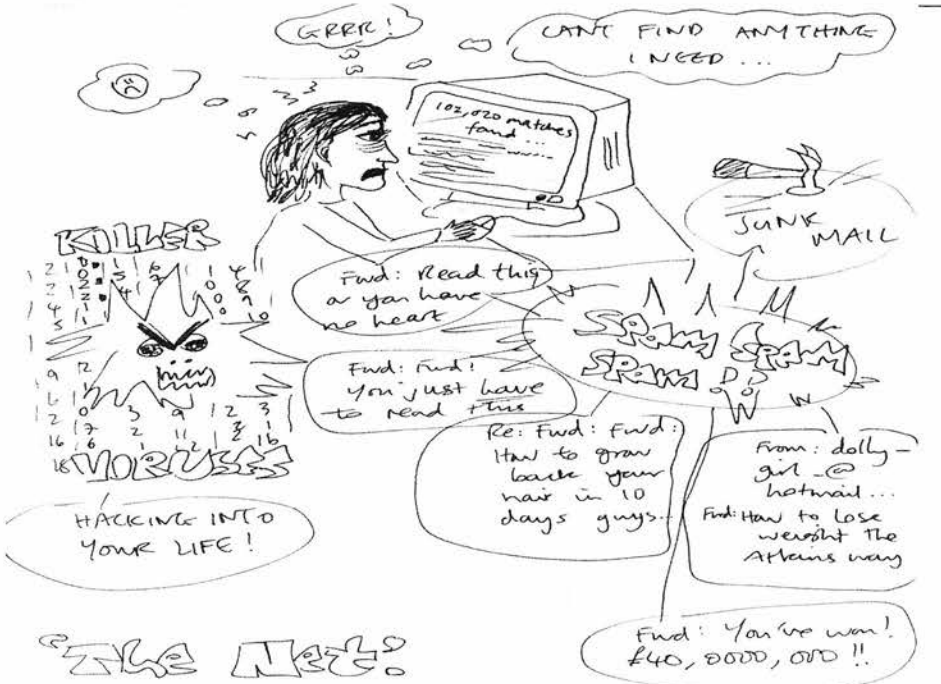 GRRR!
CANT FIND ANYTHING
I NEED...
102,020 matches
found...
JUNK
MAIL
KILLER
VIRUSES
HACKING INTO
YOUR LIFE!
Fwd: Read this
or you have
no heart
Fwd: Fwd!
You just have
to read this
SPAM SPAM
SPAM
Re: Fwd: Fwd:
How to grow
back your
hair in 10
days guys...
From: dolly-
girl_@
hotmail...
Fwd: How to Lose
weight The
Atkins way
Fwd: You've won!
£40,0000,000!!
"The Net"